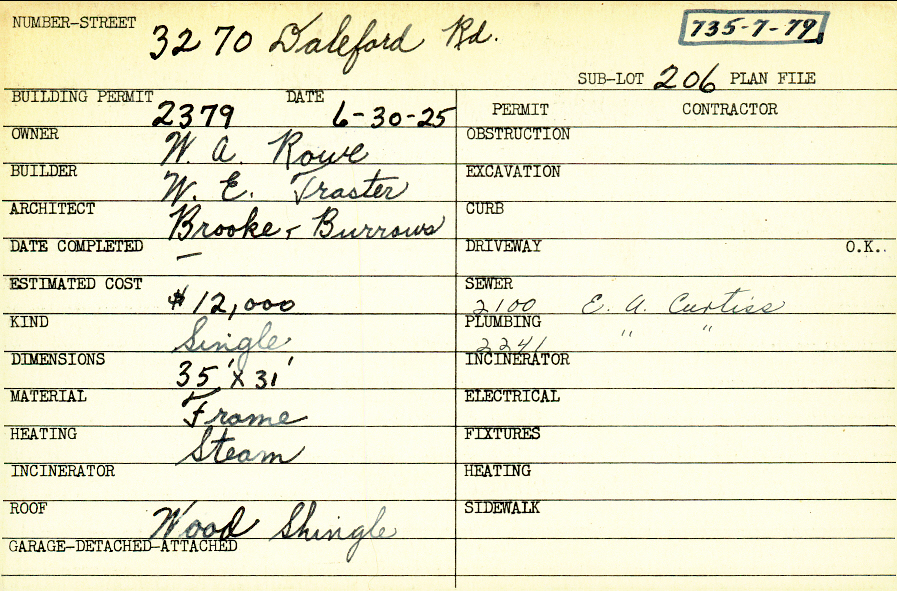 NUMBER-STREET 3270 Daleford Rd. 735-7-79
SUB-LOT 206 PLAN FILE
BUILDING PERMIT 2379 DATE 6-30-25
PERMIT CONTRACTOR
OWNER W. A. Rowe
OBSTRUCTION
BUILDER W. E. Traster
EXCAVATION
ARCHITECT Brooke & Burrows
CURB
DATE COMPLETED —
DRIVEWAY O.K..
ESTIMATED COST $12,000
SEWER 2100 E. A. Curtiss
KIND Single
PLUMBING 2241 " "
DIMENSIONS 35' x 31'
INCINERATOR
MATERIAL Frame
ELECTRICAL
HEATING Steam
FIXTURES
INCINERATOR
HEATING
ROOF Wood Shingle
SIDEWALK
GARAGE-DETACHED-ATTACHED